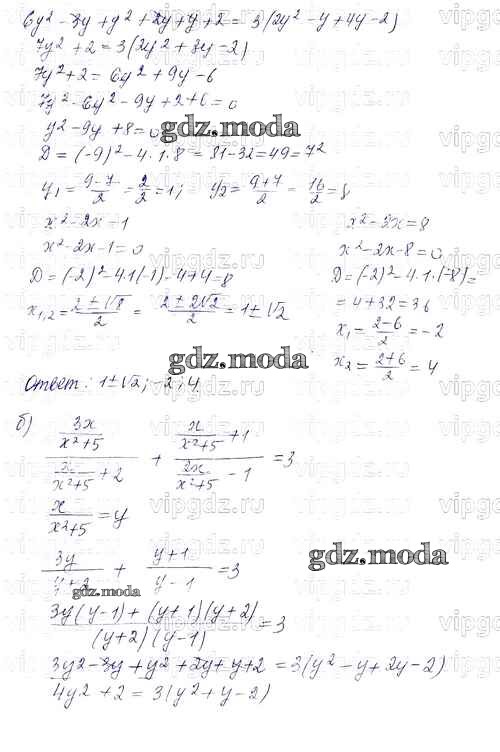 6y² - 3y + y² + 2y + y + 2 = 3(2y² - y + 4y - 2)
7y² + 2 = 3(2y² + 3y - 2)
7y² + 2 = 6y² + 9y - 6
7y² - 6y² - 9y + 2 + 6 = 0
y² - 9y + 8 = 0
gdz.moda
D = (-9)² - 4·1·8 = 81 - 32 = 49 = 7²
y₁ = (9-7)/2 = 2/2 = 1; y₂ = (9+7)/2 = 16/2 = 8
x² - 2x = 1
x² - 2x - 1 = 0
D = (-2)² - 4·1(-1) = 4 + 4 = 8
x₁,₂ = (2 ± √8)/2 = (2 ± 2√2)/2 = 1 ± √2
x² - 3x = 8
x² - 2x - 8 = 0
D = (-2)² - 4·1·(-8) =
= 4 + 32 = 36
x₁ = (2-6)/2 = -2
x₂ = (2+6)/2 = 4
gdz.moda
Ответ: 1 ± √2; -2; 4
б) (3x/(x²+5))/(x/(x²+5) + 2) + (x/(x²+5) + 1)/(x/(x²+5) - 1) = 3
x/(x²+5) = y
3y/(y+2) + (y+1)/(y-1) = 3
gdz.moda
gdz.moda
(3y(y-1) + (y+1)(y+2))/((y+2)(y-1)) = 3
3y² - 3y + y² + 2y + y + 2 = 3(y² - y + 2y - 2)
4y² + 2 = 3(y² + y - 2)
vipgdz.ru